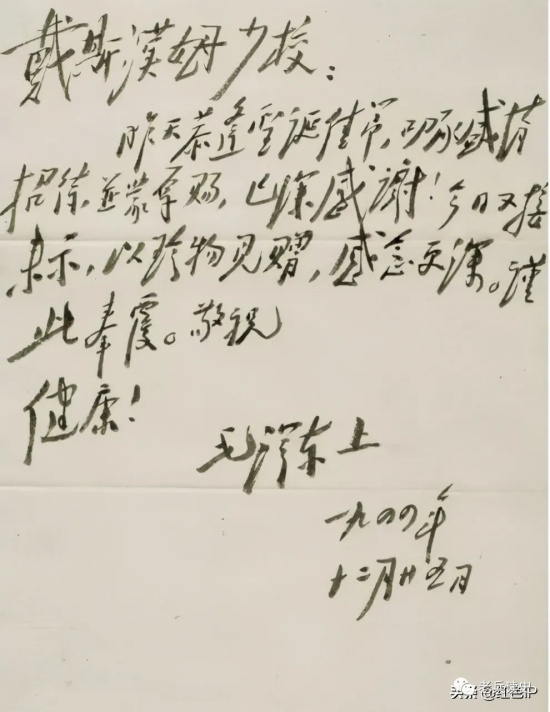 戴斯漢姆少校：
昨天恭逢圣诞佳节，叨承盛情
招待，並蒙厚赐，已深感谢！今日又接
来示，以珍物见赠，感念更深。谨
此奉覆。敬祝
健康！
毛泽东上
一九四四年
十二月廿五日
头条@红色IP